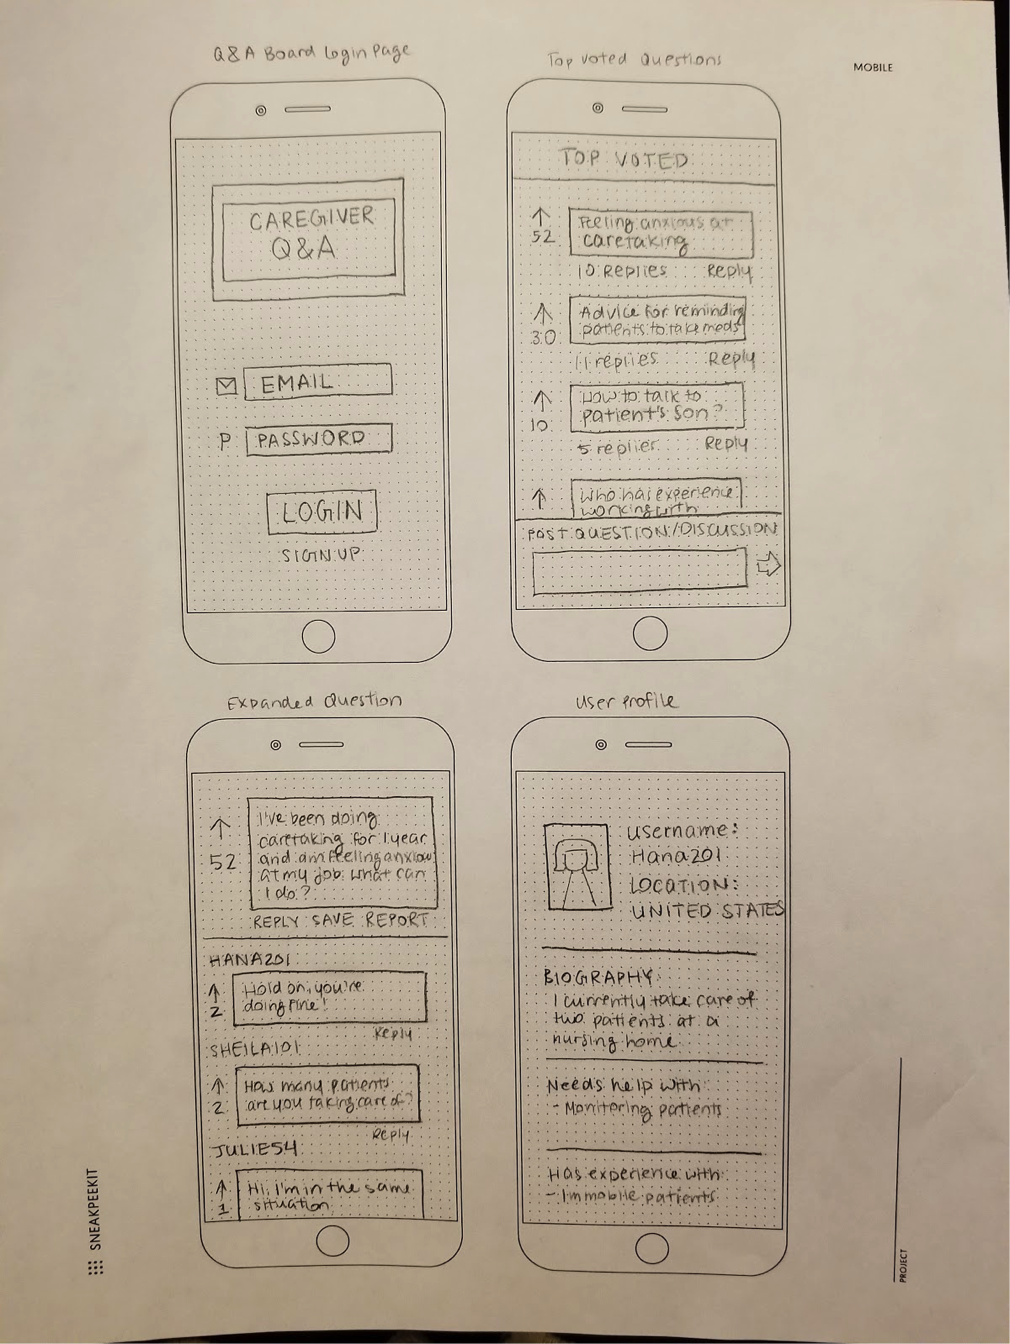 Q&A Board Login Page
CAREGIVER
Q&A
EMAIL
P PASSWORD
LOGIN
SIGN UP
Top Voted Questions
TOP VOTED
52
Feeling anxious at
caretaking
10 Replies Reply
30
Advice for reminding
patients to take meds
11 replies Reply
10
How to talk to
patient's son?
5 replies Reply
Who has experience
working with
POST QUESTION/DISCUSSION
MOBILE
Expanded Question
52
I've been doing
caretaking for 1 year
and am feeling anxiou
at my job. what can
I do?
REPLY SAVE REPORT
HANA201
2
Hold on, you're
doing fine!
Reply
SHEILA101
2
How many patients
are you taking care of?
Reply
JULIE54
1
Hi, I'm in the same
situation
User Profile
username:
Hana201
LOCATION:
UNITED STATES
BIOGRAPHY:
I currently take care of
two patients at a
nursing home
Needs help with
- Monitering patients
Has experience with
- Immobile patients
SNEAKPEEKIT
PROJECT